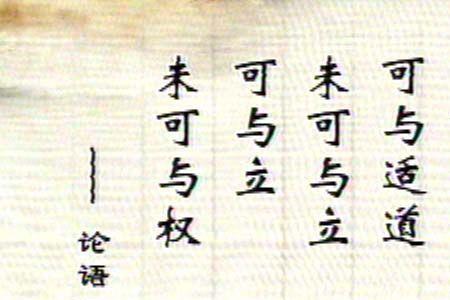 可与适道
未可与立
可与立
未可与权
——论语